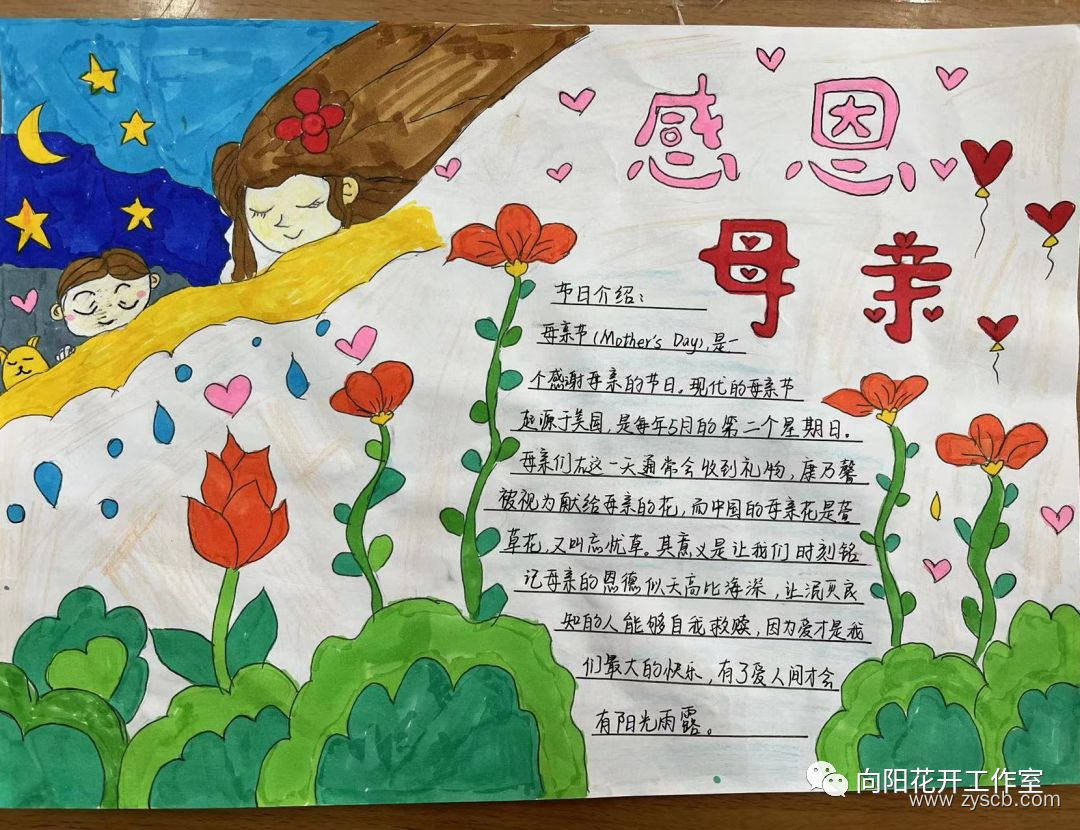 感恩
母亲
节日介绍：
母亲节(Mother's Day),是一
个感谢母亲的节日。现代的母亲节
起源于美国，是每年5月的第二个星期日。
母亲们在这一天通常会收到礼物，康乃馨
被视为献给母亲的花，而中国的母亲花是萱
草花，又叫忘忧草。其意义是让我们时刻铭
记母亲的恩德似天高比海深，让泯灭良
知的人能够自我救赎，因为爱才是我
们最大的快乐，有了爱人间才会
有阳光雨露。
向阳花开工作室
www.zyscb.com